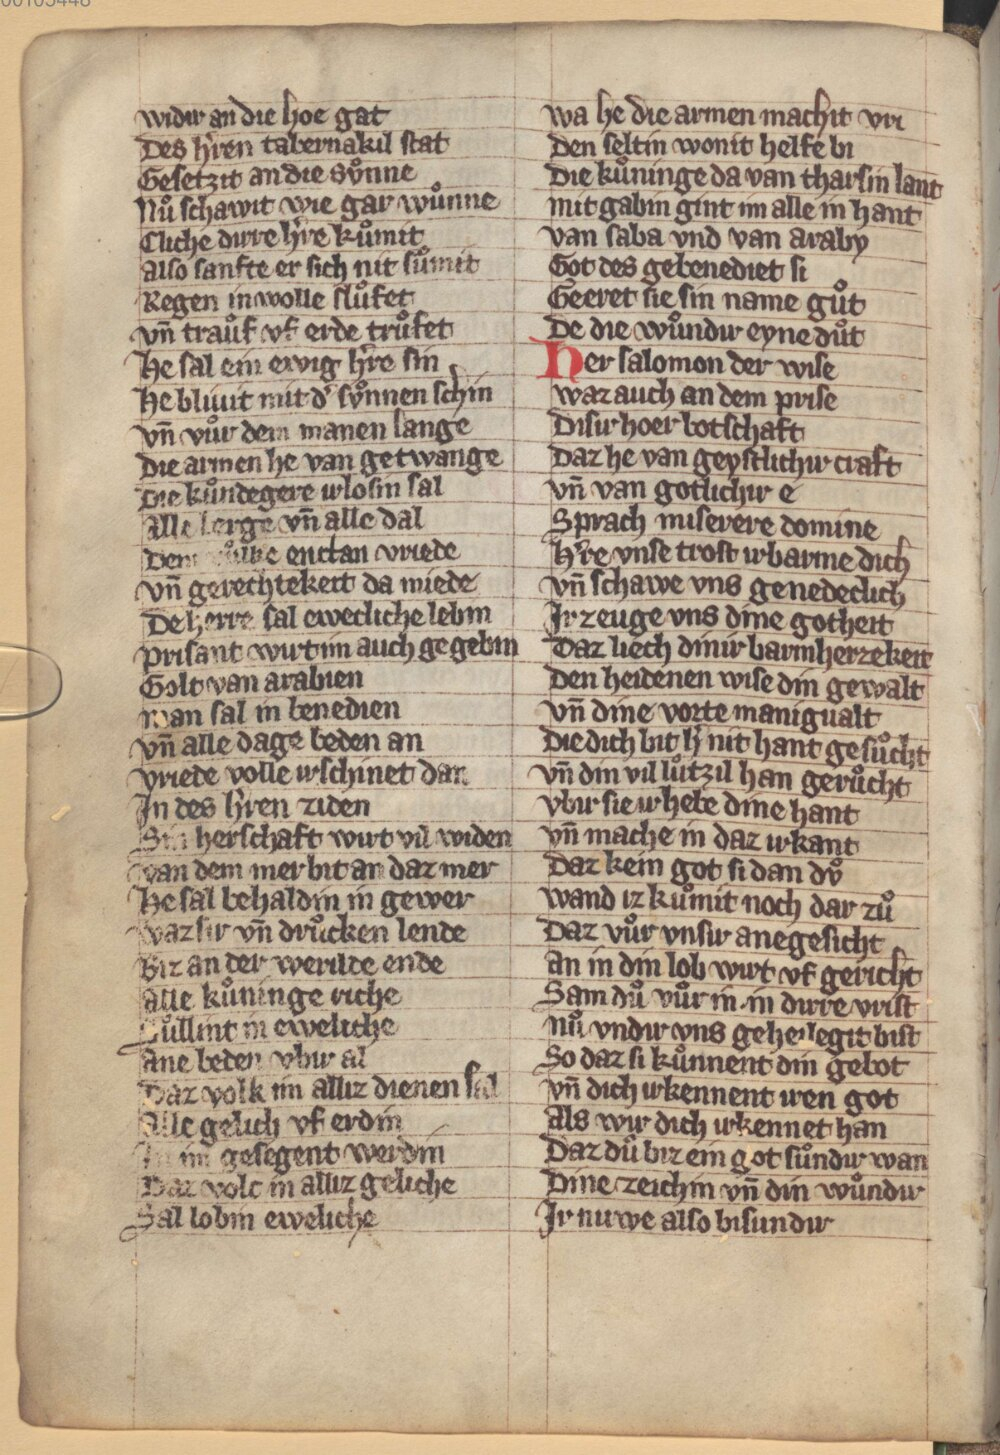 widir an die hoe gat
Des h̓ren tabernakil stat
Gesetzit an die sv̊nne
Nů schawit wie gar wůnne
Cliche dirre h̓re kůmit
Also sanfte er sich nit sůmit
Regen in wolle slůfet
vn̄ trauf vf erde trůfet
He sal ein ewig h̓re sin
He blivit mit d̓ sv̊nnen schin
vn̄ vůr dem manen lange
Die armen he van getwange
Die kůndegere irlosin sal
Alle berge vn̄ alle dal
Dem enctan vriede
vn̄ gerechtekeit da miede
De herre sal eweclichе lebin
Prisant wirt im auch gegebin
Golt van arabien
man sal in benedien
vn̄ alle dage beden an
vriede volle irschinet dan
In des h̓ren ziden
Sin herschaft wirt vil widen
van dem mer bit an daz mer
He sal behaldin in gewer
wazsir vn̄ drůcken lende
Biz an der werilde ende
alle kůninge riche
Sůllint in eweliche
Ane beden vbir al
Daz volk im alliz dienen sal
Alle gelich vf erdin
In im gesegent werdin
Daz volc in alliz geliche
Sal lobin eweliche
wa he die armen machit vri
Den seltin wonit helfe bi
Die kůninge da van tharsin lant
mit gabin gint im alle in hant
van saba vnd van araby
Got des gebenediet si
Geeret sie sin name gůt
De die wůndir eyne důt
Her salomon der wise
waz auch an dem prise
Disir hoer botschaft
Daz he van geystlichir craft
vn̄ van gotlichir e
Sprach miserere domine
H̓re vnse trost irbarme dich
vn̄ schawe vns genedeclich
Ir zeuge vns dine gotheit
Daz liech dinir barmherzekeit
Den heidenen wise din gewalt
vn̄ dine vorte manigualt
Die dich bit h̓ nit hant gesůcht
vn̄ din vil lůtzil han gerůcht
vbir sie irhebe dine hant
vn̄ mache in daz irkant
Daz kein got si dan dv̊
wand iz kůmit noch dar zů
Daz vůr vnsir anegesicht
an in din lob wirt vf gericht
Sam dů vůr in in dirre vrist
nů vndir vns geheilegit bist
So daz si kůnnent din gebot
vn̄ dich irkennent iren got
als wir dich irkennet han
Daz dů biz ein got sůndir wan
Dine zeichin vn̄ din wůndir
Ir nuwe also bisundir